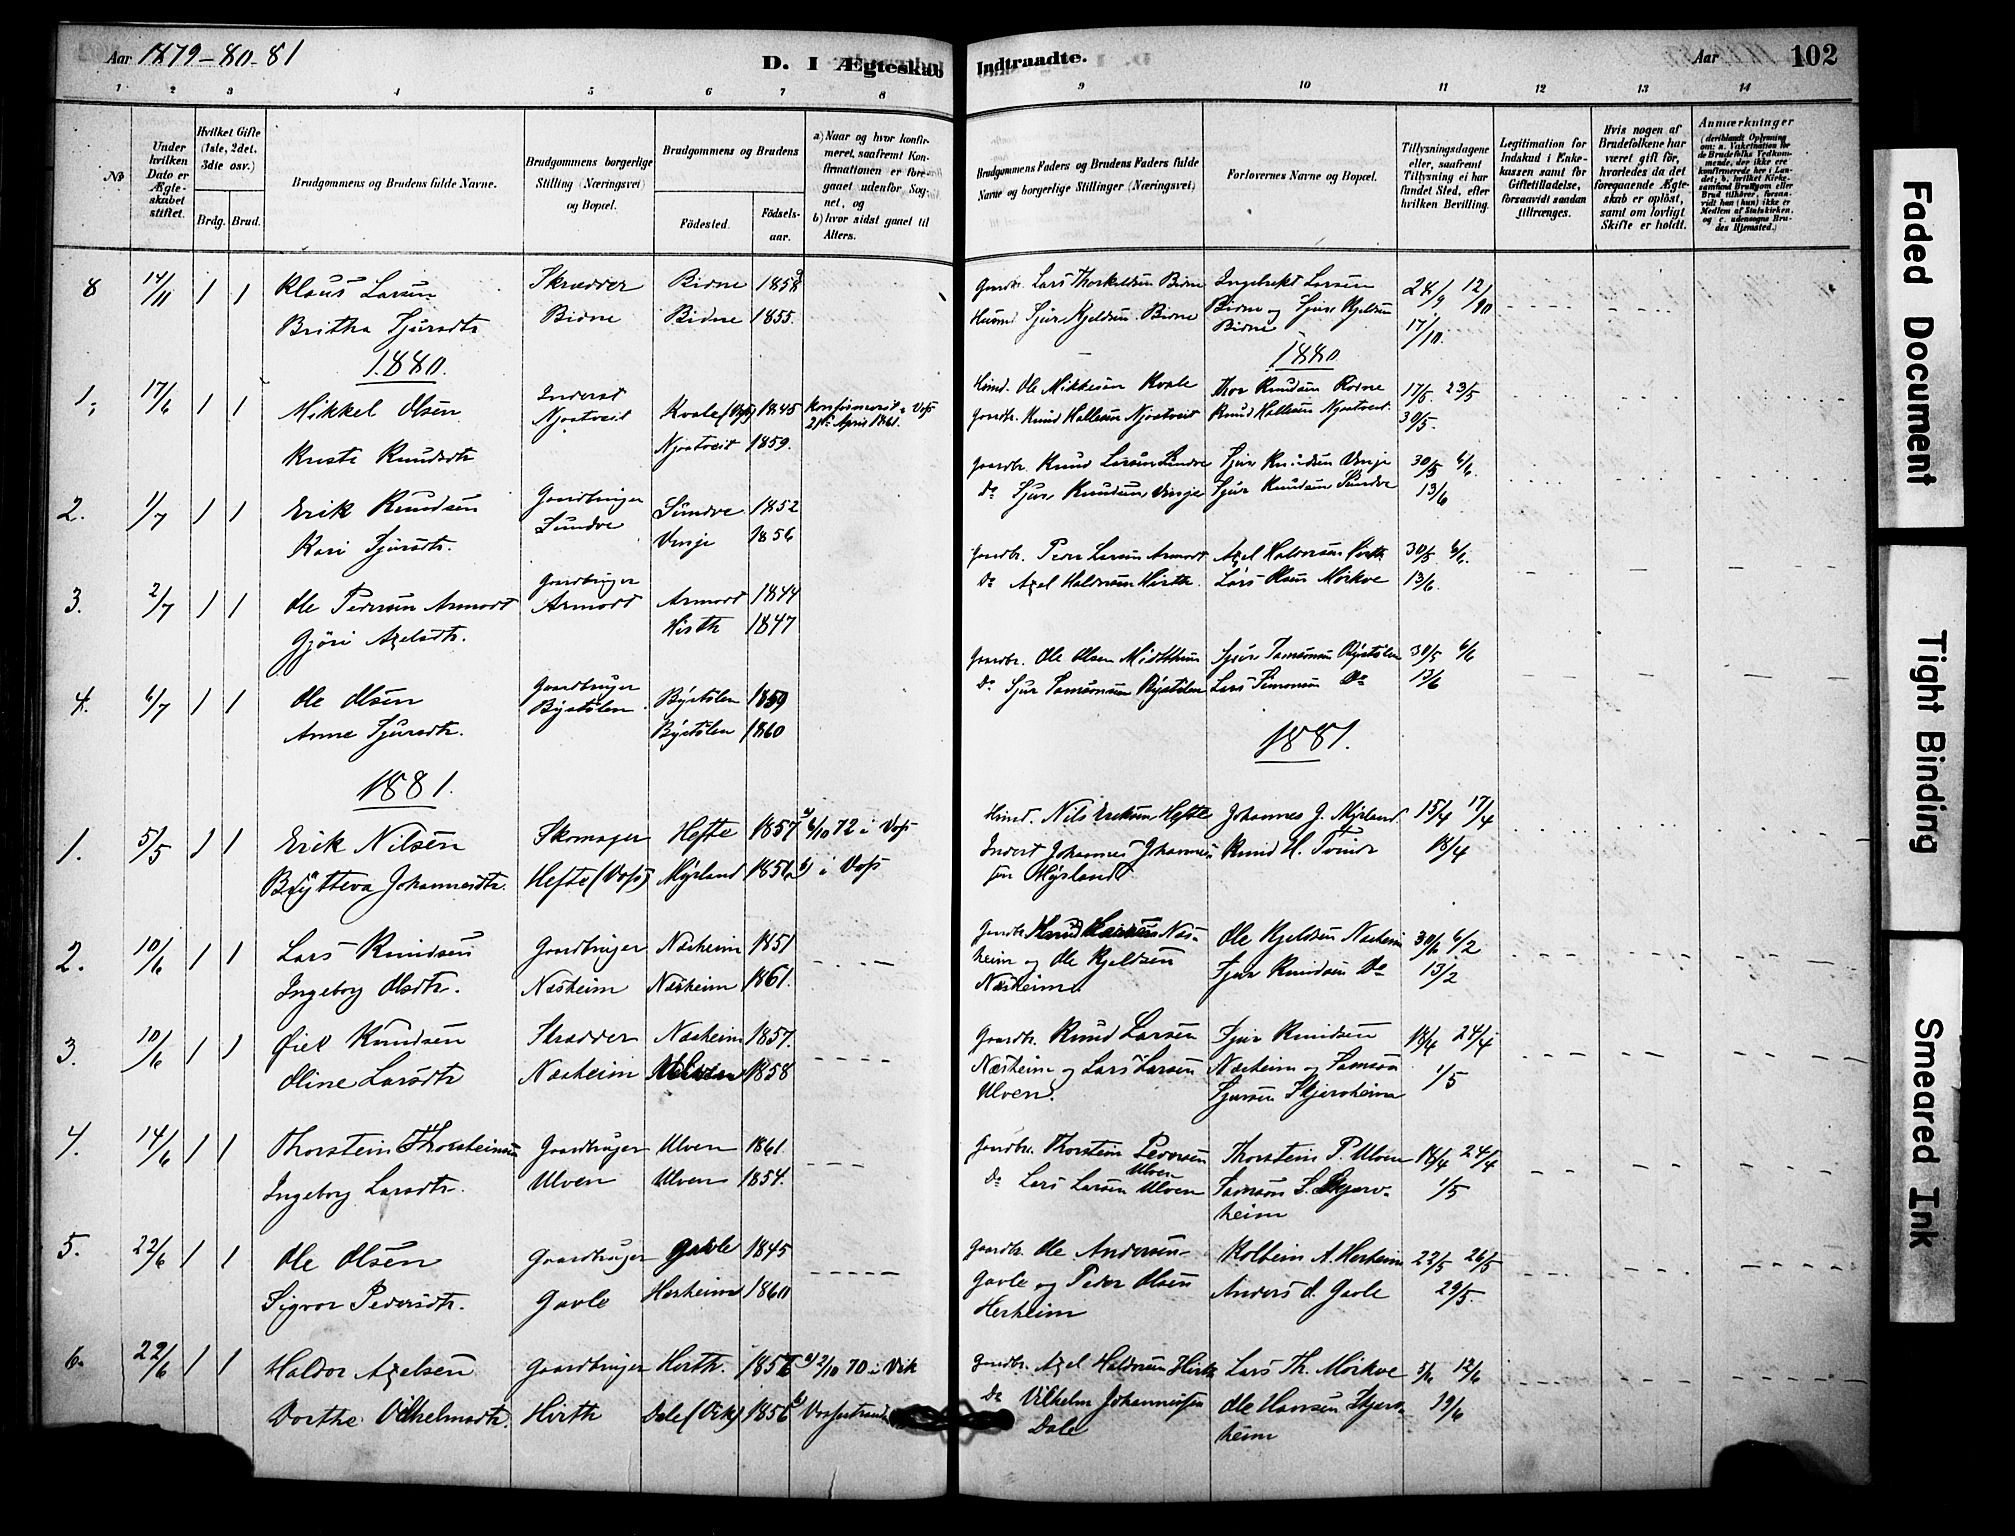 Aar 1879-80-81
D. I Ægteskab Indtraadte.
Aar 102
1 2 3 4 5 6 7 8 9 10 11 12 13 14
No
Under hvilken Dato er Ægteskabet stiftet.
Hvilket Gifte (1ste, 2det, 3die osv.)
Brdg. Brud.
Brudgommens og Brudens fulde Navne.
Brudgommens borgerlige Stilling (Næringsvei) og Bopæl.
Brudgommens og Brudens
Födested.
Födselsaar.
a) Naar og hvor konfirmeret, saafremt Konfirmationen er foregaaet udenfor Sognet, og
b) hvor sidst gaaet til Alters.
Brudgommens Faders og Brudens Faders fulde Navne og borgerlige Stillinger (Næringsvei)
Forlovernes Navne og Bopæl.
Tillysningsdagene eller, saafremt Tillysning ei har fundet Sted, efter hvilken Bevilling.
Legitimation for Indskud i Enkekassen samt for Giftetilladelse, forsaavidt saadan tiltrænges.
Hvis nogen af Brudefolkene har været gift før, hvorledes da det foregaaende Ægteskab er oplöst, samt om lovligt Skifte er holdt.
Anmærkninger
8 14/11 1 1 Klaus Larsen Skrædder Bidne
Britha Sjursdtr Bidne Bidne 1855.
Gaardbr. Lars Thorkeldsen Bidne Ingebrekt Larsen
Husmd Sjur Kjeldsen Bidne Bidne og Sjur Kjeldsen
Bidne
17/10.
1880. 1880
1. 17/6 1 1 Mikkel Olsen Inderst Kvale 1845 Konfirmeret i Voss
Njostveit 21de April 1861.
Kneste Knudsdtr Njostveit 1859.
Husmd. Ole Mikkelsen Kvale Thor Knudsen Rödne 17/5 23/5
Gaardbr. Knud Hallesen Njostveit Knud Hallesen Njostveit. 30/5.
2. 1/7 1 1 Erik Knudsen Gaardbruger Sundve 1852
Kari Sjursdtr. Sundve Vinje 1856
Gaardbr. Knud Larsen Sundve Sjur Knudsen Vinje 30/5 6/6.
Do Sjur Knudsen Vinje Sjur Knudsen Sundve 13/6
3. 2/7 1 1 Ole Pedersen Armodt Gaardbruger Armodt 1844
Gjöri Axelsdtr. Armodt Hirth 1847
Gaardbr. Peder Larsen Armodt Axel Haldorsen Hirth 30/5 6/6.
Do Axel Haldorsen Hirth. Lars Olsen Mörkve 13/6.
4. 6/7 1 1 Ole Olsen Gaardbruger Byrstölen 1859
Anne Sjursdtr. Byrstölen Byrstölen 1860
Gaardbr. Ole Olsen Midtthun Sjur Samsonsen Byrstölen 30/5 6/6
Do Sjur Samsonsen Byrstölen Lars Simonsen Do 13/6
1881. 1881.
1. 5/5 1 1 Erik Nilsen Skomager Hefte 1857 a) 6/10 72 i Voss
Brytteva Johannesdtr. Hefte (Voss) Myrland b) i Voss
Husmd. Nils Eriksen Hefte Johannes J. Myrland 15/4 17/4
Inderst Johannes Johannes- Knud H. Tvinde 18/4
sen Myrland
2. 10/6 1 1 Lars Knudsen Gaardbruger Næsheim 1851
Ingeborg Olsdtr. Næsheim Næsheim 1861.
Gaardbr. Knud Larsen Næs- Ole Kjeldsen Næsheim 6/2
heim og Ole Kjeldsen Sjur Knudsen Do 13/2
Næsheim
3. 10/6 1 1 Eirik Knudsen Skrædder Næsheim 1857.
Oline Larsdtr Næsheim Ulven 1858
Gaardbr. Knud Larsen Sjur Knudsen 18/4 24/4
Næsheim og Lars Larsen Næsheim og Samson 1/5
Ulven. Sjursen Skjerveheim
4. 14/6 1 1 Thorstein Thorsteinsen Gaardbruger Ulven 1861.
Ingeborg Larsdtr. Ulven Ulven 1854.
Gaardbr. Thorstein Pedersen Thorstein P. Ulven 18/4 24/4
Ulven
Do Lars Larsen Ulven Samson S. Skjerv- 1/5
heim
5. 22/6 1 1 Ole Olsen Gaardbruger Gavle 1845
Sigvor Pedersdtr. Gavle Herheim 1860
Gaardbr. Ole Andersen Kolbein A. Herheim 22/5 26/5
Gavle og Peder Olsen Anders O. Gavle 29/5.
Herheim
6. 22/6 1 1 Haldor Axelsen Gaardbruger Hirth. a) 2/10 70 i Vik
Dorthe Vilhelmsdtr. Hirth Dale (Vik) 1856 b) Vossestranden
Gaardbr. Axel Haldorsen Hirth Lars Th. Mörkve 5/6 12/6
Do Vilhelm Johannessen Ole Hansen Skjerv- 19/6
Dale heim
Faded Document
Tight Binding
Smeared Ink